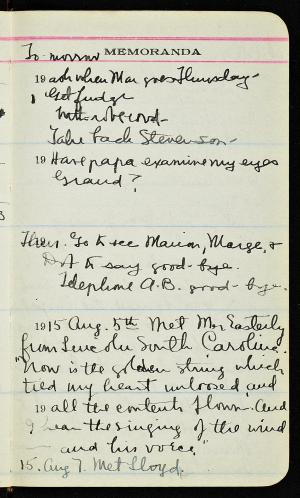 MEMORANDA
To-morrow
19 ask when Mar goes Thursday -
Get fudge
Take back Stevenson -
19 Have papa examine my eyes
Thurs. Go to see Marion, Marge, &
Dot to say good-bye.
Telephone A.B. good-bye.
1915 Aug. 5th Met Mr Easterly
from Lincoln South Carolina.
"Now is the golden string which
tied my heart unloosed, and
19 all the contents flown. And
I hear the singing of the wind
and his voice."
15. Aug 7. Met Lloyd.